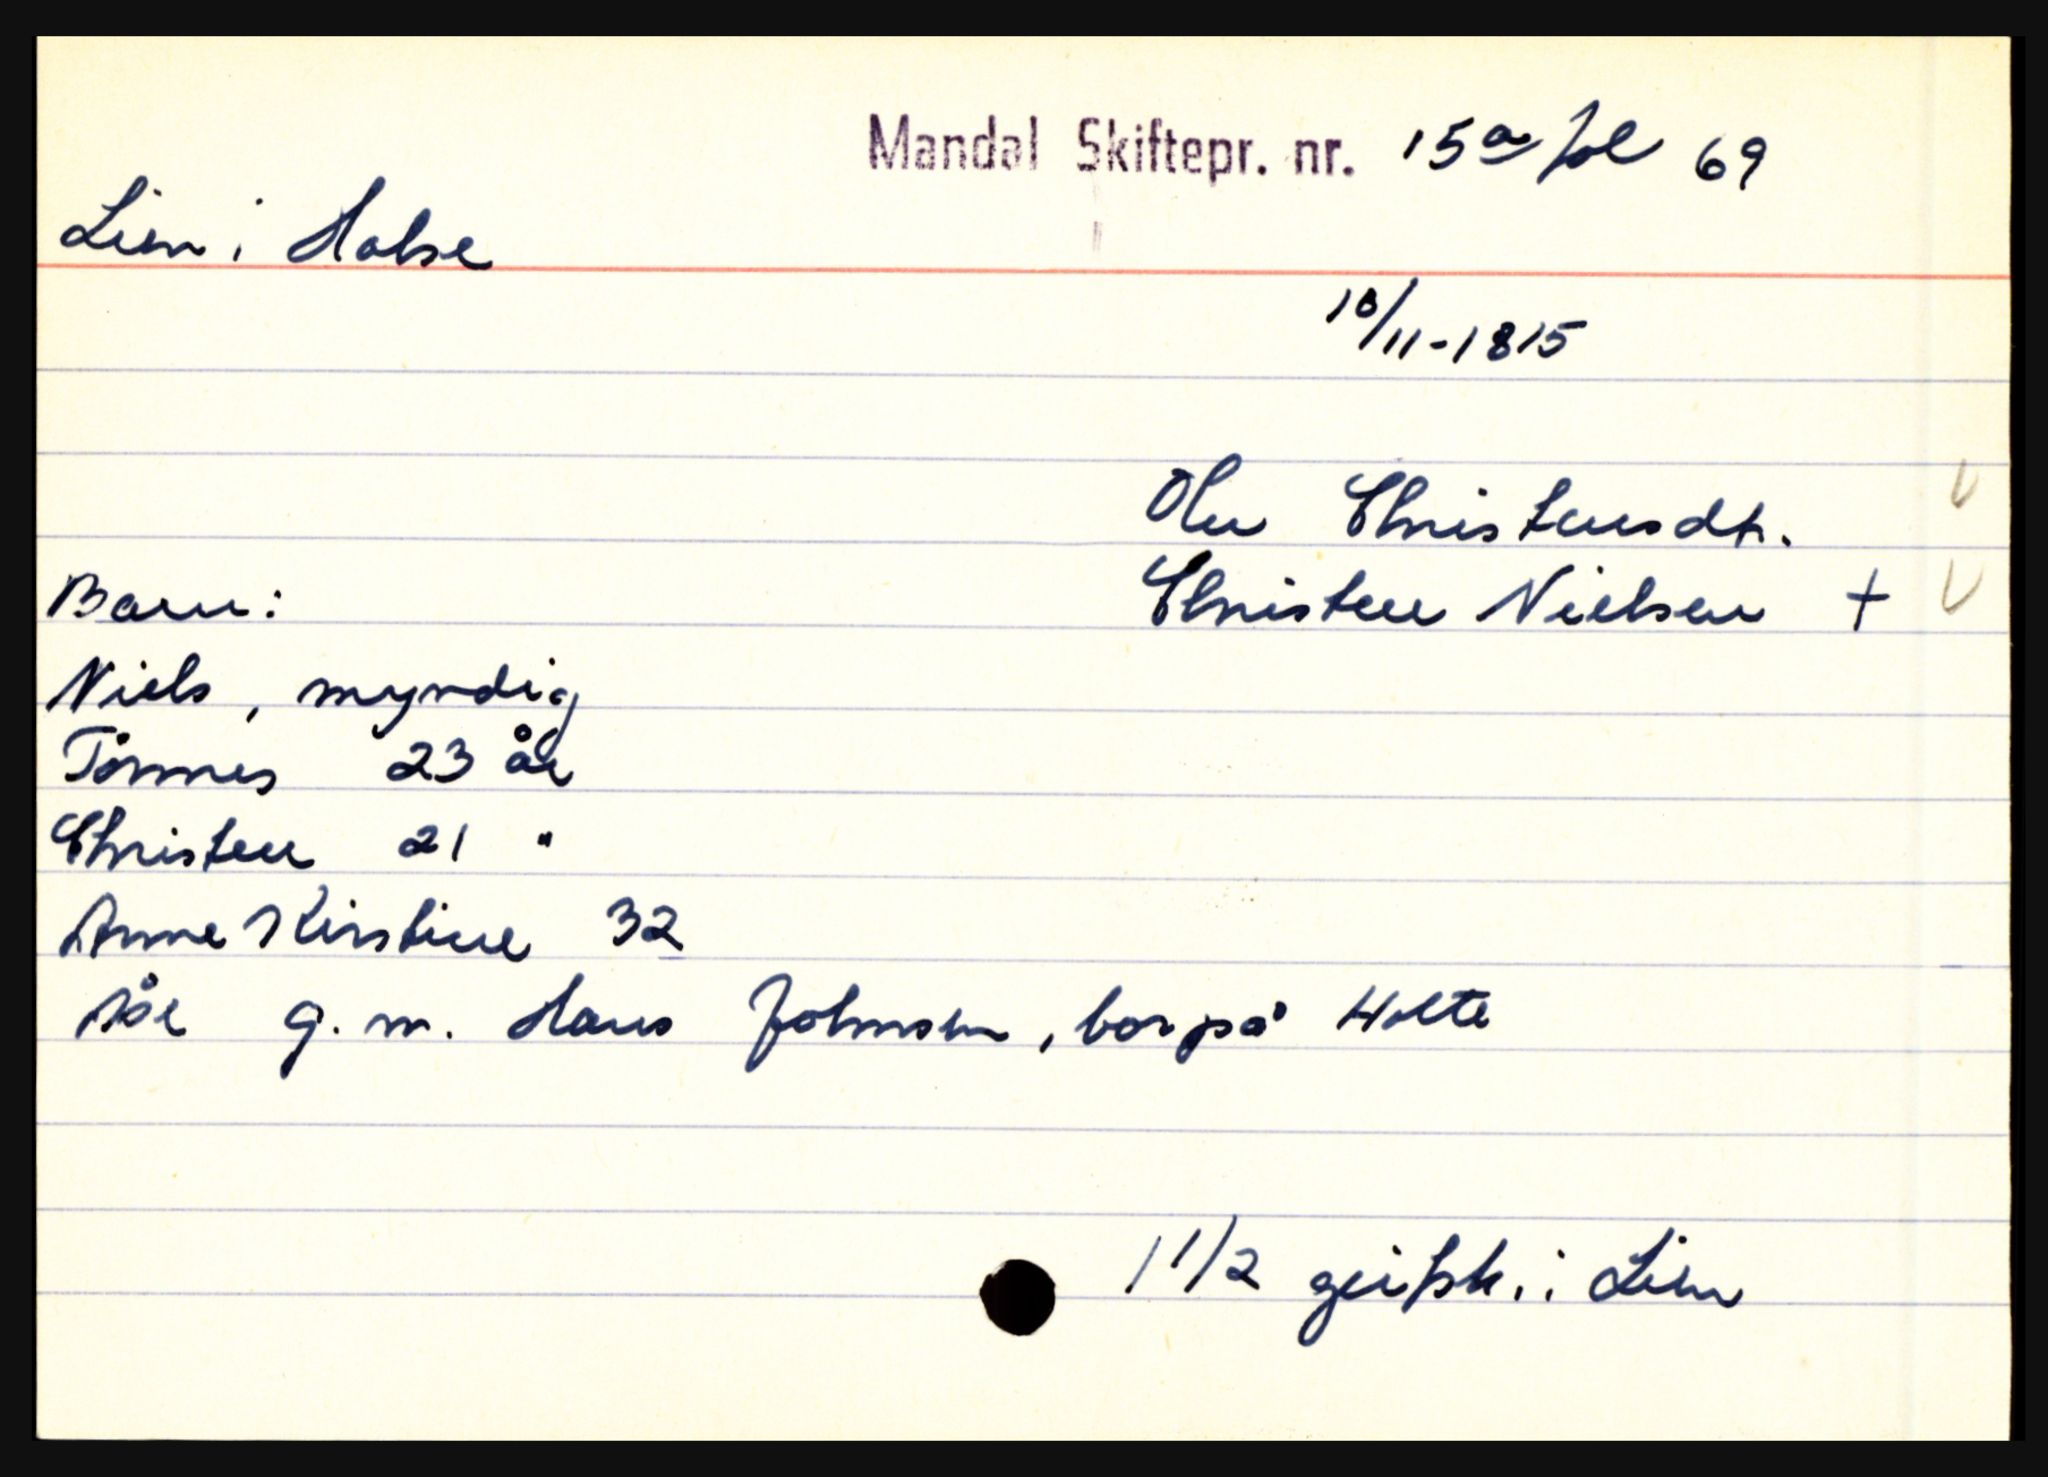 Mandal Skiftepr. nr. 15a fol 69
Lien i Halse
10/11-1815
Olu Christensdt.
Barn: Christen Nielsen +
Niels, myndig
Tönnes 23 år
Christen 21 "
Anne Kirstine 32
Åse g. m. Hans Johnsen, bor på Holte
1 1/2 geitsk. i Lien